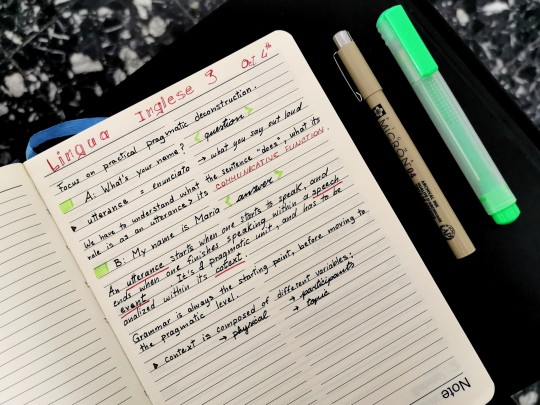 Lingua Inglese 3 Oct 4th
Focus on practical pragmatic deconstruction.
A: What's your name? < question >
utterance = enunciato → what you say out loud
We have to understand what the sentence "does", what its
role is as an utterance > its COMMUNICATIVE FUNCTION.
B: My name is Maria < answer >
An utterance starts when one starts to speak, and
ends when one finishes speaking within a speech
event. It's a pragmatic unit, and has to be
analized within its cotext.
Grammar is always the starting point, before moving to
the pragmatic level.
context is composed of different variables:
→ physical → participants
→ topic
Note
MICRON